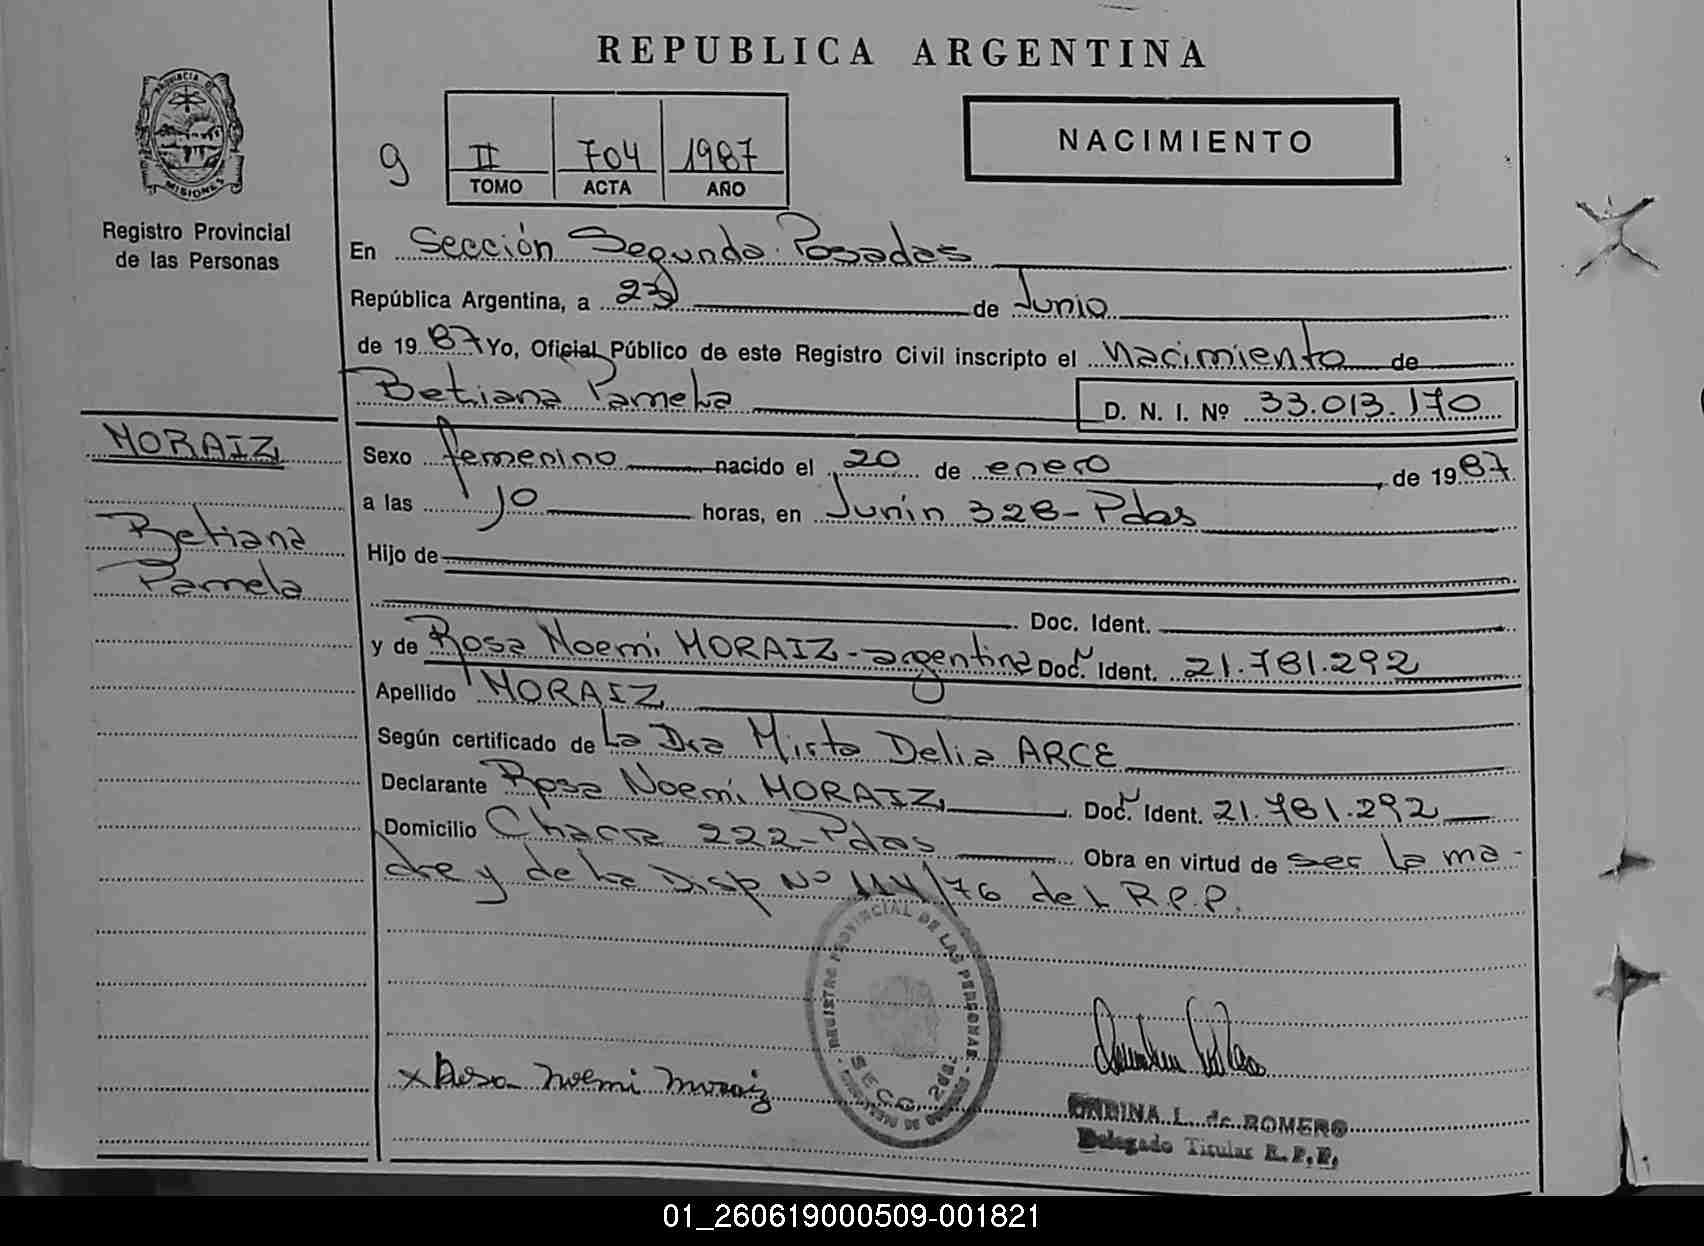 REPUBLICA ARGENTINA
PROVINCIA DE MISIONES
Registro Provincial
de las Personas
9
II 704 1987
TOMO ACTA AÑO
NACIMIENTO
En Sección Segunda Posadas
República Argentina, a 23 de Junio
de 1987 Yo, Oficial Público de este Registro Civil inscripto el Nacimiento de
Betiana Pamela D. N. I. Nº 33.013.170
MORAIZ
Betiana
Pamela
Sexo femenino nacido el 20 de enero, de 1987
a las 10 horas, en Junín 328-Pdas
Hijo de
Doc. Ident.
y de Rosa Noemi MORAIZ-argentina Doc. Ident. 21.781.292
Apellido MORAIZ
Según certificado de La Dra Mirta Delia ARCE
Declarante Rosa Noemi MORAIZ Doc. Ident. 21.781.292
Domicilio Chacra 222-Pdas Obra en virtud de ser la ma-
dre y de la Disp Nº 114/76 del R.P.P.
REGISTRO PROVINCIAL DE LAS PERSONAS
SECC. 2da.
x Rosa Noemi Moraiz
ONDINA L. de ROMERO
Delegado Titular R.P.P.
01_260619000509-001821